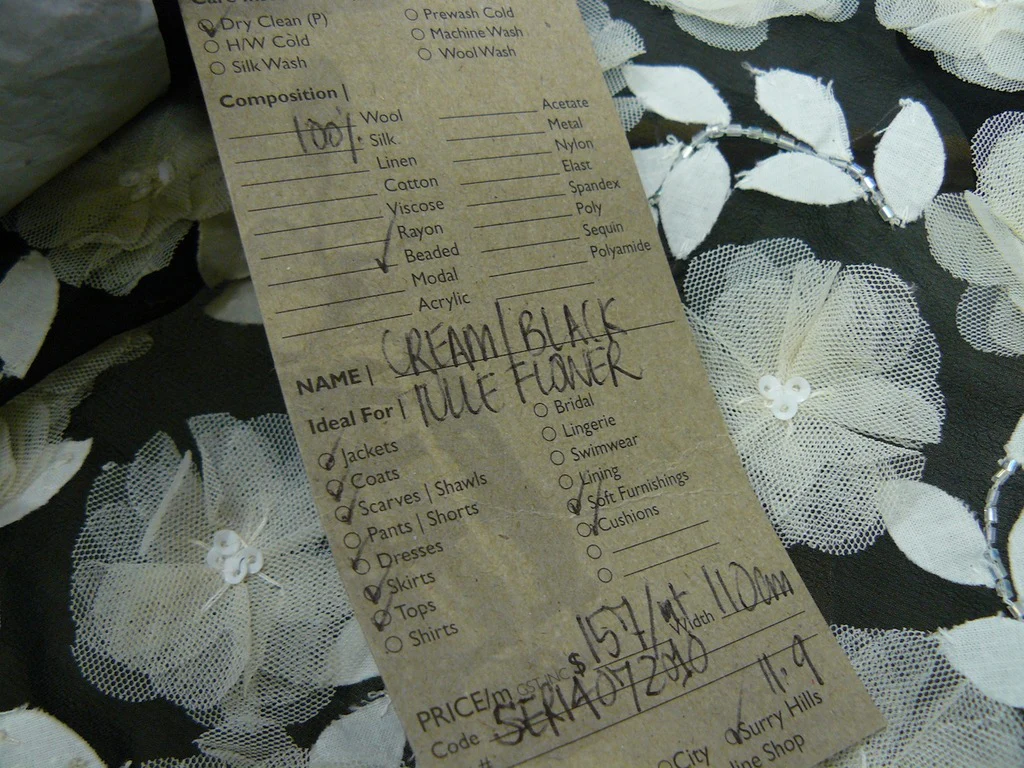 Dry Clean (P) Prewash Cold
H/W Cold Machine Wash
Silk Wash Wool Wash
Composition |
Wool Acetate
100% Silk Metal
Linen Nylon
Cotton Elast
Viscose Spandex
Rayon Poly
Beaded Sequin
Modal Polyamide
Acrylic
NAME | CREAM/BLACK
TULLE FLOWER
Ideal For |
Jackets Bridal
Coats Lingerie
Scarves | Shawls Swimwear
Pants | Shorts Lining
Dresses Soft Furnishings
Skirts Cushions
Tops
Shirts
PRICE/m GST INC $ 157/mt Width 110cm
Code SEK1A072010 11.9
# City Surry Hills